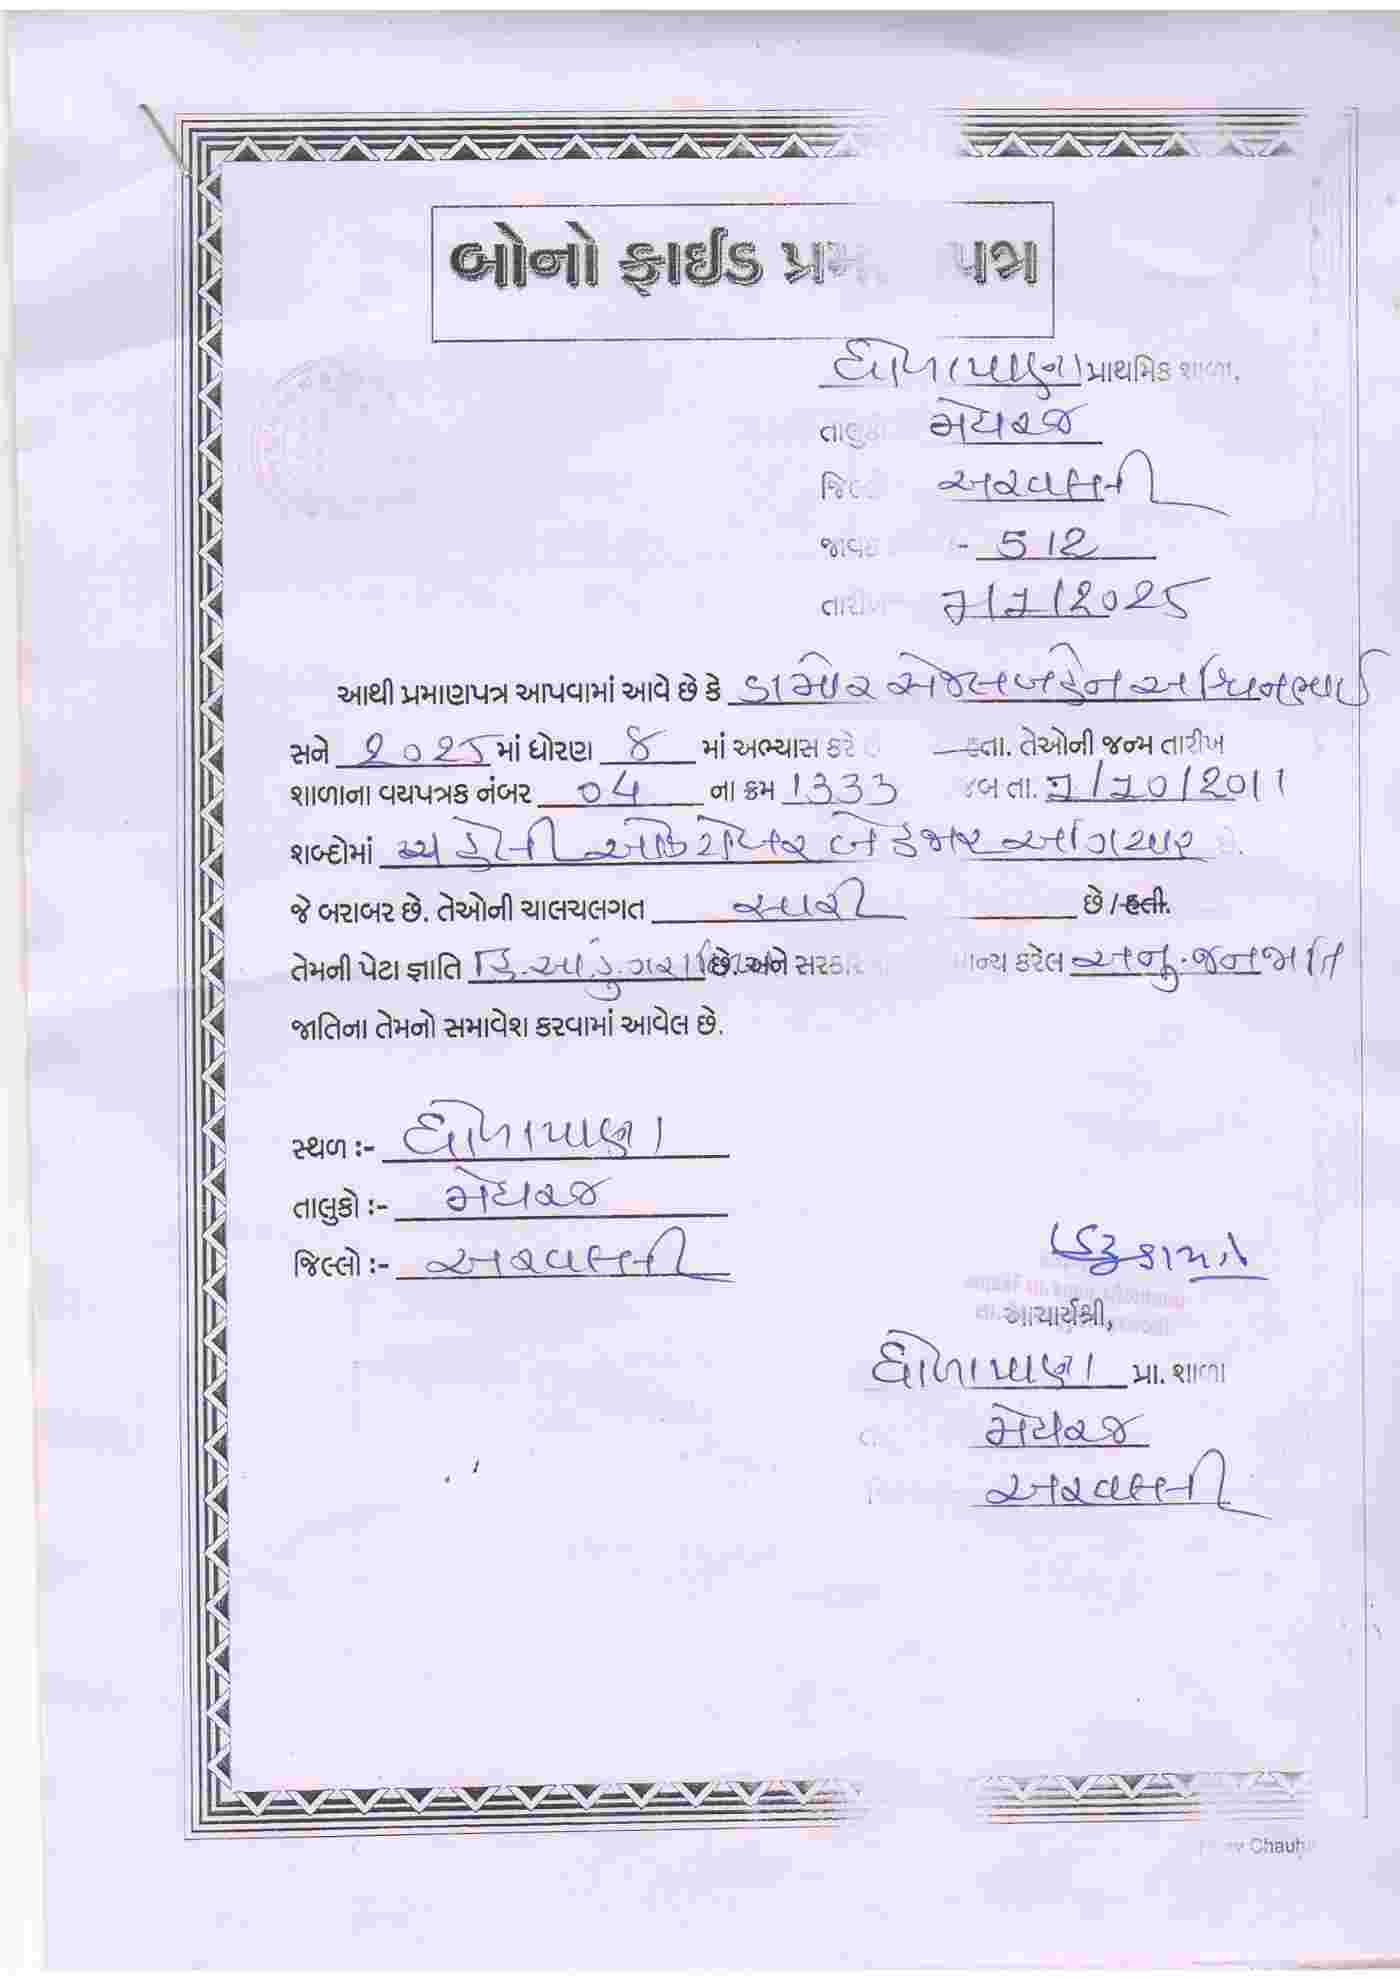 બોનો ફાઈડ પ્રમ પત્ર
ધોળાપાણા પ્રાથમિક શાળા.
તાલુકો મેઘરજ
જિલ્ અરવલ્લી
જાવક - 512
તારીખ 7/7/2025
આથી પ્રમાણપત્ર આપવામાં આવે છે કે ડામોર સેજલબહેન અશ્વિનભાઈ
સને 2025 માં ધોરણ 8 માં અભ્યાસ કરે હતા. તેઓની જન્મ તારીખ
શાળાના વયપત્રક નંબર 04 ના ક્રમ 1333 જબ તા. 7/10/2011
શબ્દોમાં ઓક્ટોબર બે હજાર અગિયાર છે.
જે બરાબર છે. તેઓની ચાલચલગત સારી છે / હતી.
તેમની પેટા જ્ઞાતિ હિ.આ.ડુંગરી છે. અને સરકારે માન્ય કરેલ અનુ.જનજાતિ
જાતિના તેમનો સમાવેશ કરવામાં આવેલ છે.
સ્થળ :- ધોળાપાણા
તાલુકો :- મેઘરજ
જિલ્લો :- અરવલ્લી
આચાર્યશ્રી,
ધોળાપાણા પ્રા. શાળા
મેઘરજ
અરવલ્લી